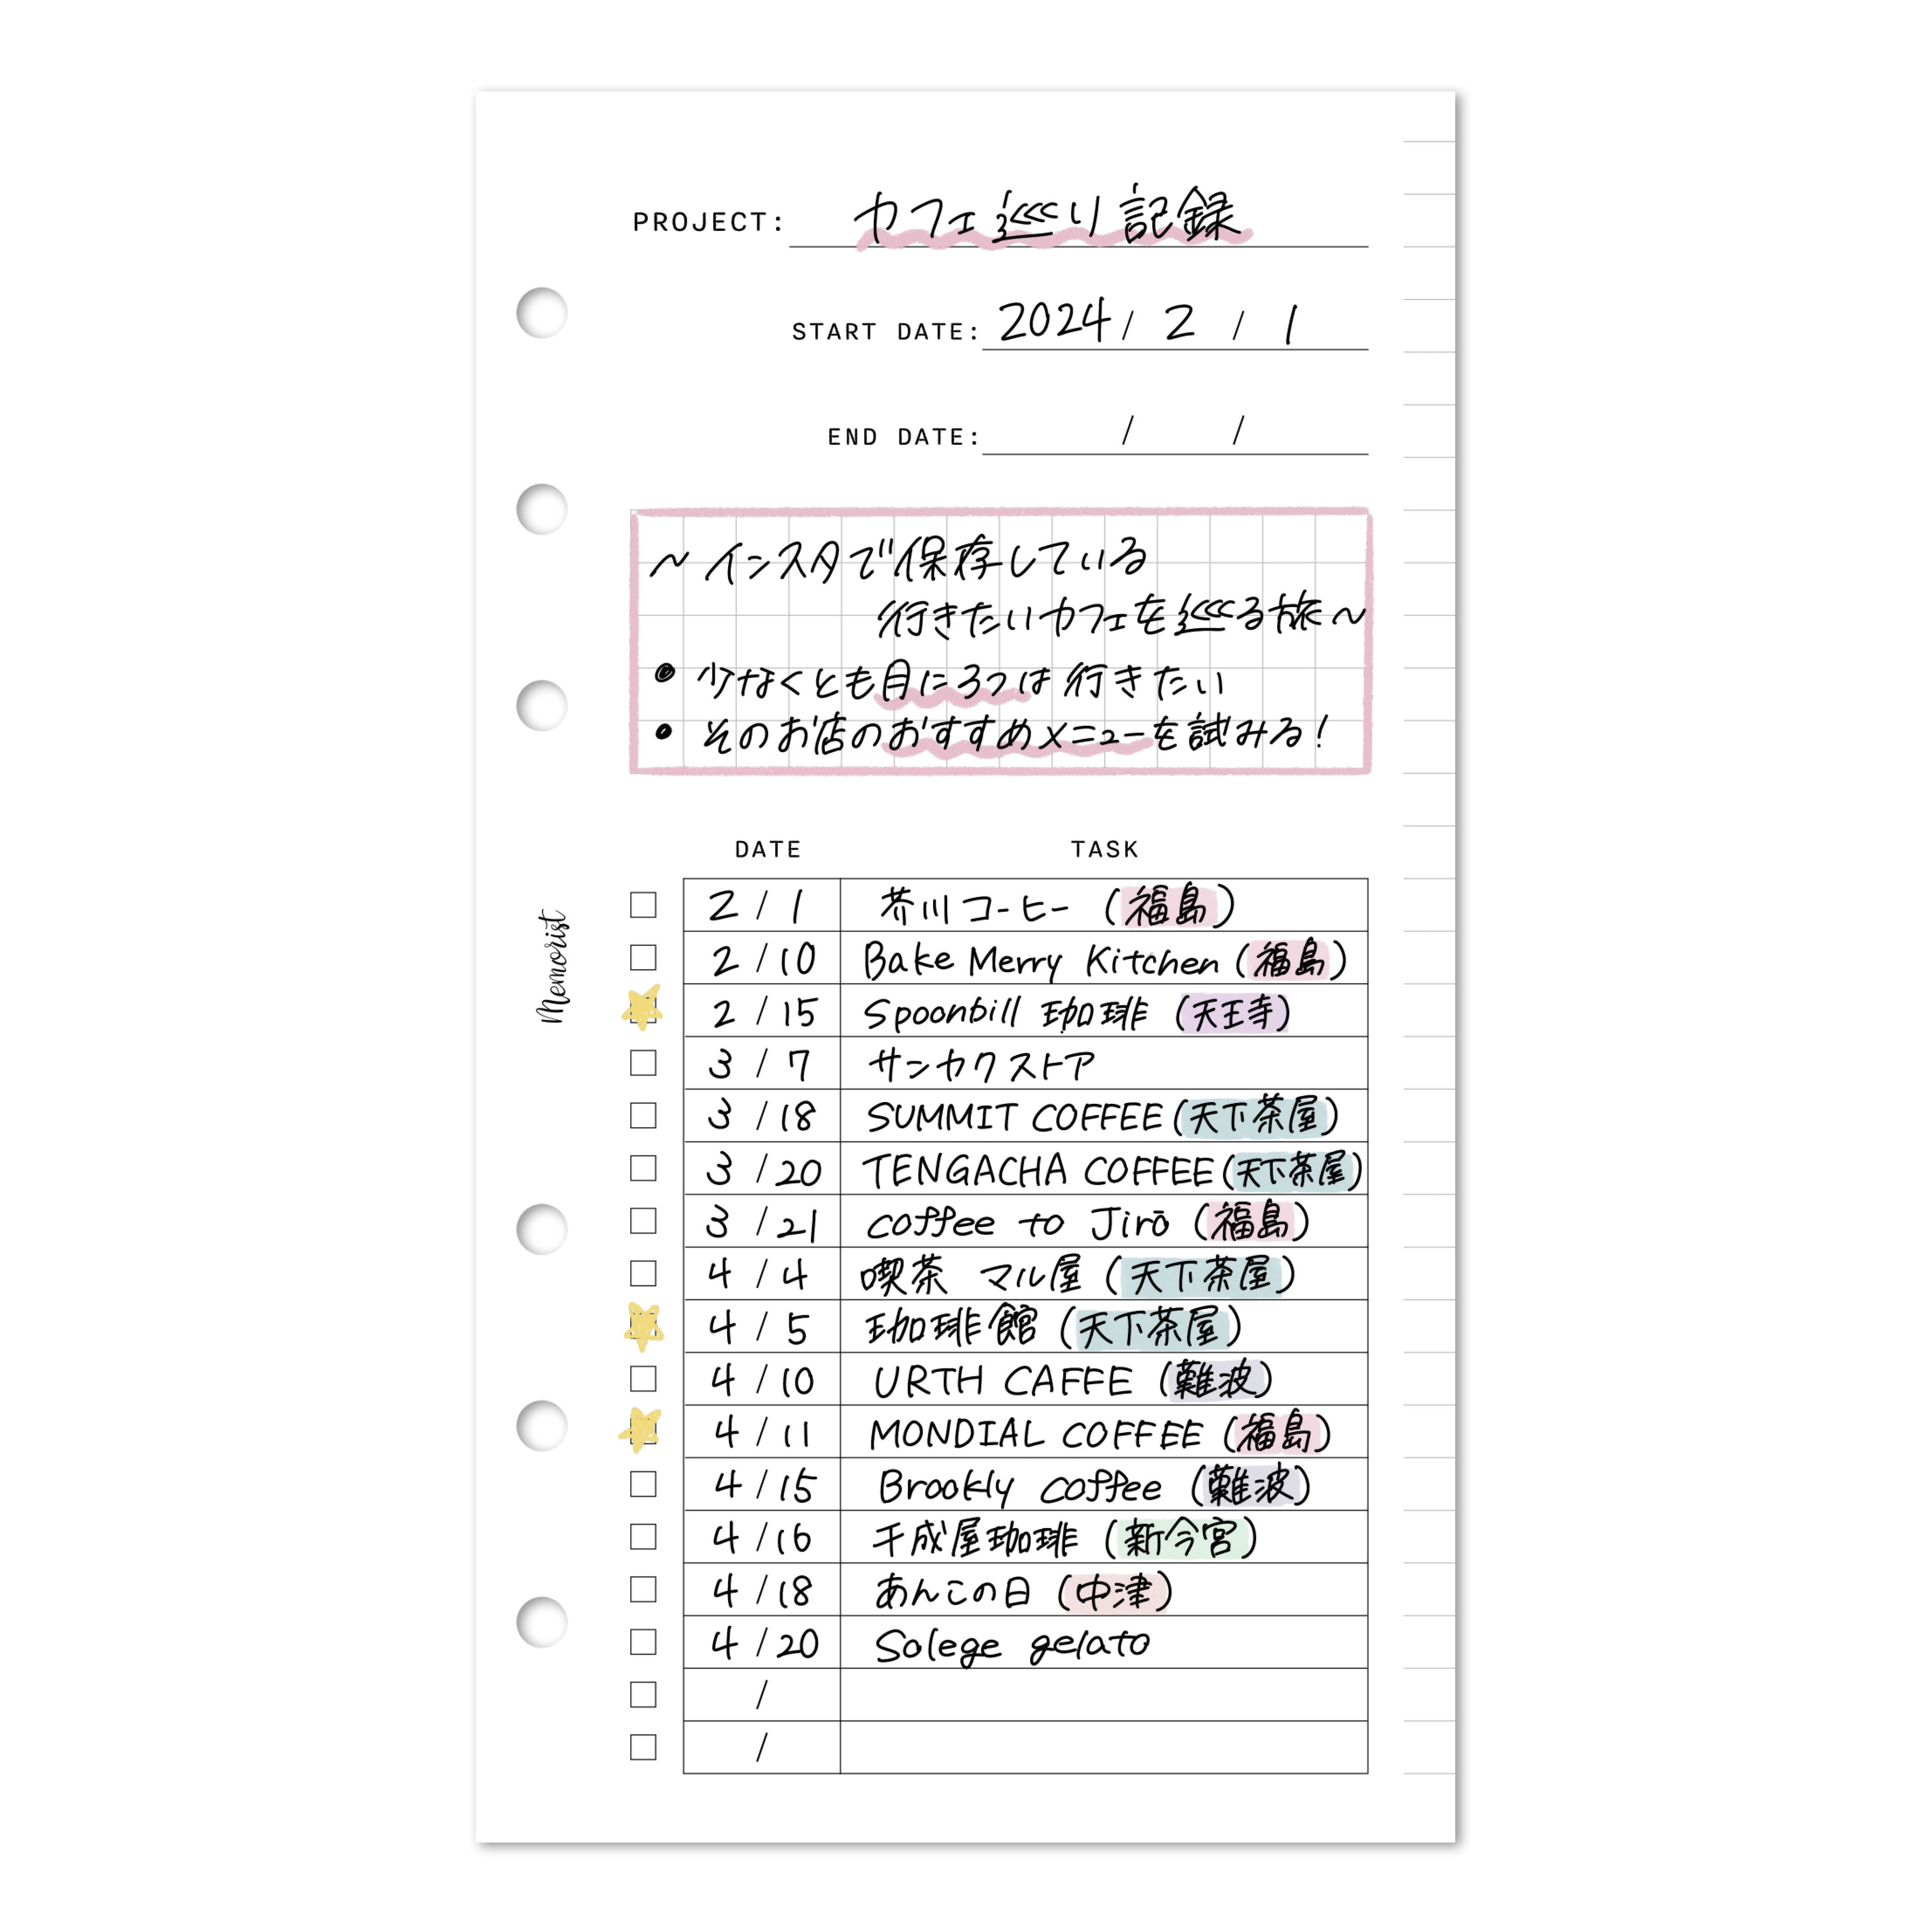 PROJECT: カフェ巡り記録
START DATE: 2024 / 2 / 1
END DATE: / /
〜インスタで保存している
行きたいカフェを巡る旅〜
● 少なくとも月に3つは行きたい
● そのお店のおすすめメニューを試みる!
DATE TASK
2 / 1 芥川コーヒー (福島)
2 / 10 Bake Merry Kitchen (福島)
2 / 15 Spoonbill 珈琲 (天王寺)
3 / 7 サンカクストア
3 / 18 SUMMIT COFFEE (天下茶屋)
3 / 20 TENGACHA COFFEE (天下茶屋)
3 / 21 coffee to Jirō (福島)
4 / 4 喫茶 マル屋 (天下茶屋)
4 / 5 珈琲館 (天下茶屋)
4 / 10 URTH CAFFE (難波)
4 / 11 MONDIAL COFFEE (福島)
4 / 15 Brookly coffee (難波)
4 / 16 千成屋珈琲 (新今宮)
4 / 18 あんこの日 (中津)
4 / 20 Solege gelato
/
/
Memorist